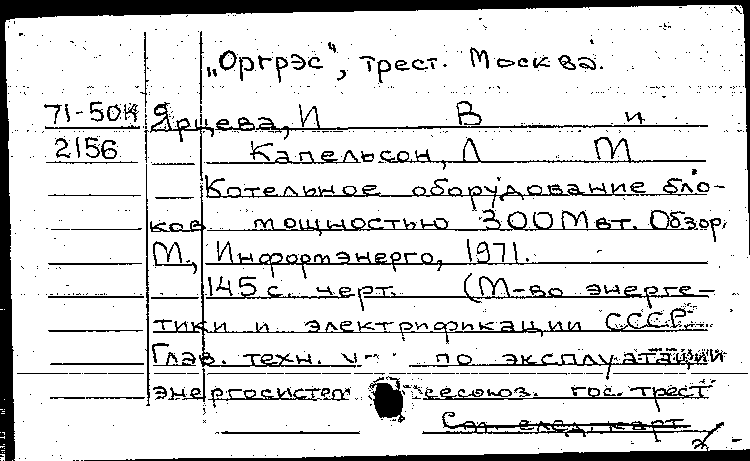 „Оргрэс“, трест. Москва.
71-50К Ярцева, И В и
2156 Капельсон, Л М
Котельное оборудование бло-
ков мощностью 300 Мвт. Обзор.
М., Информэнерго, 1971.
145 с. черт. (М-во энерге-
тики и электрификации СССР.
Глав. техн. по эксплуатации
энергосистем гос. трест
См. след. карт.